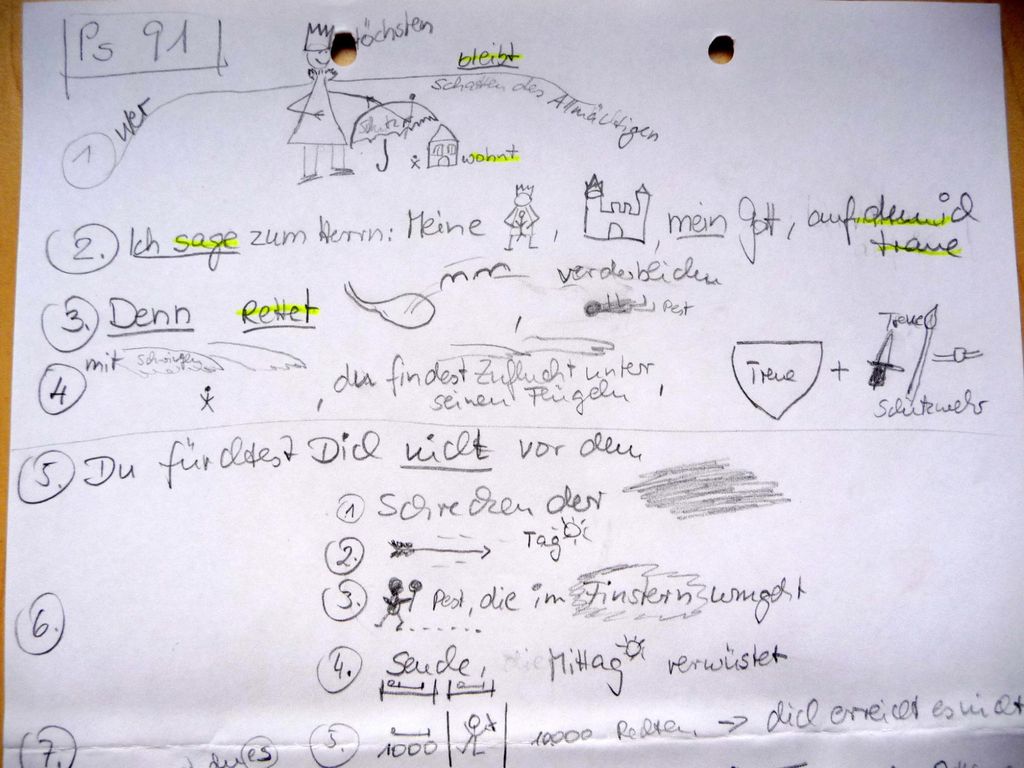 Ps 91
Höchsten
bleibt
Schatten des Allmächtigen
1 Wer
Schutz
wohnt
2. Ich sage zum Herrn: Meine , , mein Gott, auf den ich
traue
3. Denn rettet , verderblichen
Pest
4 mit Schwingen , du findest Zuflucht unter
seinen Flügeln,
Treue + Treue
Schutzwehr
5. Du fürchtest Dich nicht vor dem
1 Schrecken der
2. Tag
6. 3. Pest, die im Finstern umgeht
4. Seuche, die Mittag verwüstet
7. 5. 1000 10000 Rechten → dich erreicht es nicht
es